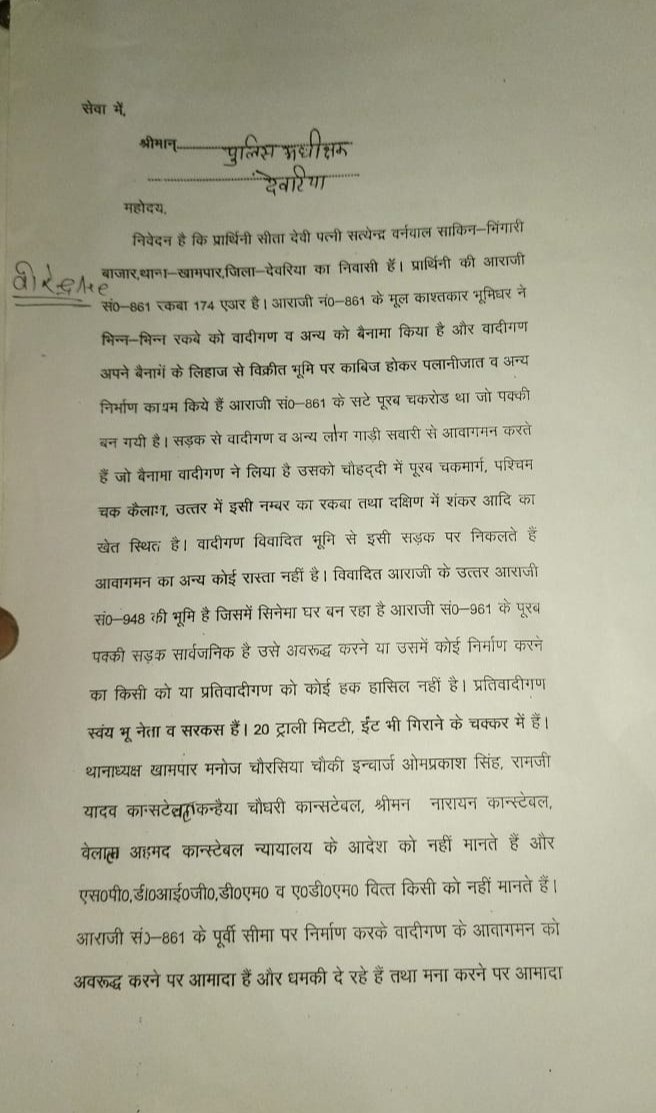 सेवा में,
श्रीमान् पुलिस अधीक्षक
देवरिया
महोदय,
निवेदन है कि प्रार्थिनी सीता देवी पत्नी सत्येन्द्र वर्नवाल साकिन–भिंगारी
बाजार,थाना–खामपार,जिला–देवरिया का निवासी हैं। प्रार्थिनी की आराजी
सं0–861 रकबा 174 एअर है। आराजी नं0–861 के मूल काश्तकार भूमिधर ने
भिन्न–भिन्न रकबे को वादीगण व अन्य को बैनामा किया है और वादीगण
अपने बैनामें के लिहाज से विक्रीत भूमि पर काबिज होकर पलानीजात व अन्य
निर्माण कायम किये हैं आराजी सं0–861 के सटे पूरब चकरोड था जो पक्की
बन गयी है। सड़क से वादीगण व अन्य लोग गाड़ी सवारी से आवागमन करते
हैं जो बैनामा वादीगण ने लिया है उसको चौहद्दी में पूरब चकमार्ग, पश्चिम
चक कैलाश, उत्तर में इसी नम्बर का रकबा तथा दक्षिण में शंकर आदि का
खेत स्थित है। वादीगण विवादित भूमि से इसी सड़क पर निकलते हैं
आवागमन का अन्य कोई रास्ता नहीं है। विवादित आराजी के उत्तर आराजी
सं0–948 की भूमि है जिसमें सिनेमा घर बन रहा है आराजी सं0–961 के पूरब
पक्की सड़क सार्वजनिक है उसे अवरूद्ध करने या उसमें कोई निर्माण करने
का किसी को या प्रतिवादीगण को कोई हक हासिल नहीं है। प्रतिवादीगण
स्वंय भू नेता व सरकस हैं। 20 ट्राली मिटटी, ईंट भी गिराने के चक्कर में हैं।
थानाध्यक्ष खामपार मनोज चौरसिया चौकी इन्चार्ज ओमप्रकाश सिंह, रामजी
यादव कान्सटेबल कन्हैया चौधरी कान्सटेबल, श्रीमन नारायन कान्स्टेबल,
अहमद कान्स्टेबल न्यायालय के आदेश को नहीं मानते हैं और
एस0पी0,डी0आई0जी0,डी0एम0 व ए0डी0एम0 वित्त किसी को नहीं मानते हैं।
आराजी सं0–861 के पूर्वी सीमा पर निर्माण करके वादीगण के आवागमन को
अवरूद्ध करने पर आमादा हैं और धमकी दे रहे हैं तथा मना करने पर आमादा